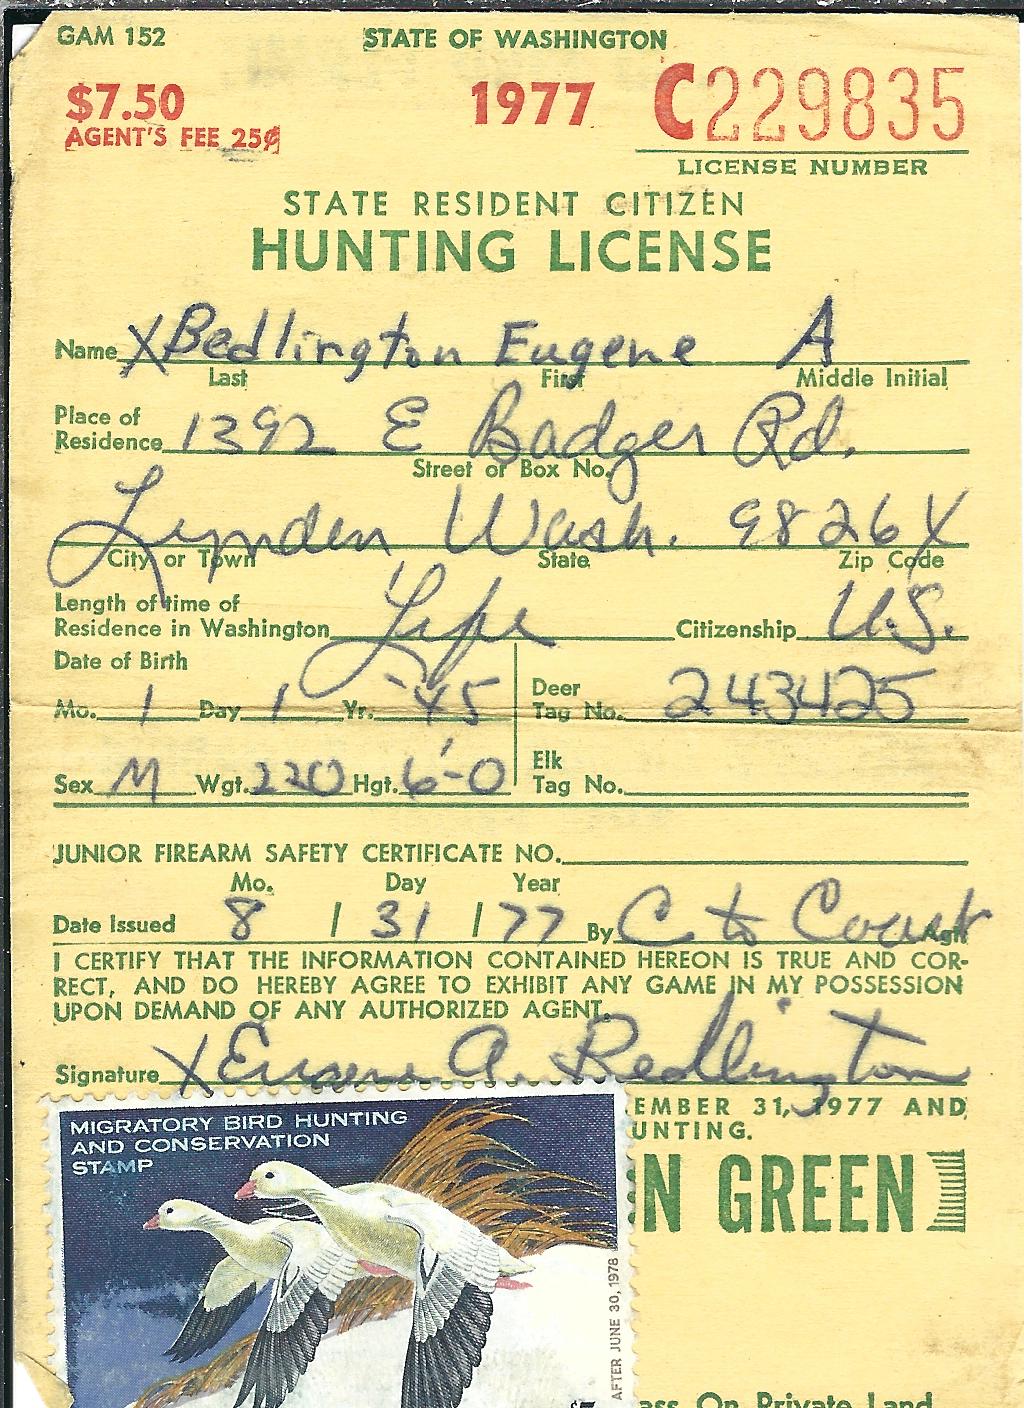 GAM 152 STATE OF WASHINGTON
$7.50 1977 C229835
AGENT'S FEE 25¢
LICENSE NUMBER
STATE RESIDENT CITIZEN
HUNTING LICENSE
Name X Bedlington Eugene A
Last First Middle Initial
Place of
Residence 1392 E Badger Rd.
Street or Box No.
Lynden Wash. 9826X
City or Town State Zip Code
Length of time of
Residence in Washington Life Citizenship U.S.
Date of Birth
Mo. 1 Day 1 Yr. -45 Deer Tag No. 243425
Sex M Wgt. 220 Hgt. 6'-0 Elk Tag No.
JUNIOR FIREARM SAFETY CERTIFICATE NO.
Mo. Day Year
Date Issued 8 / 31 / 77 By C to Coast Agt.
I CERTIFY THAT THE INFORMATION CONTAINED HEREON IS TRUE AND COR-
RECT, AND DO HEREBY AGREE TO EXHIBIT ANY GAME IN MY POSSESSION
UPON DEMAND OF ANY AUTHORIZED AGENT.
Signature X Eugene A. Bedlington
EMBER 31, 1977 AND
UNTING.
N GREEN
MIGRATORY BIRD HUNTING
AND CONSERVATION
STAMP
AFTER JUNE 30, 1978
ass On Private Land